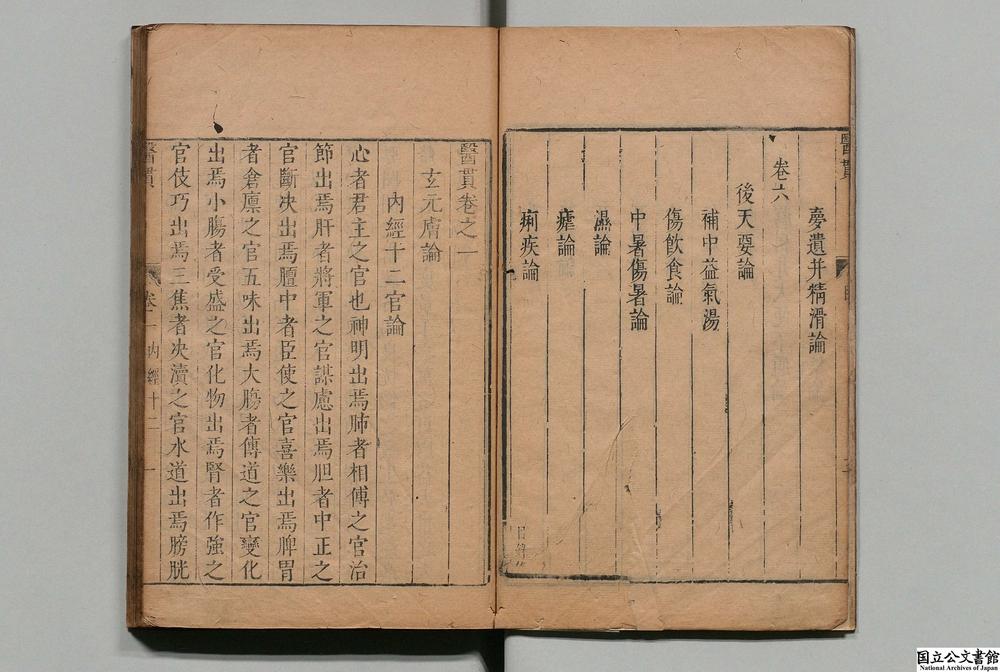 醫貫
夢遺并精滑論
卷六
後天要論
補中益氣湯
傷飲食論
中暑傷暑論
濕論
瘧論
痢疾論
目錄
醫貫卷之一
玄元膚論
內經十二官論
心者君主之官也神明出焉肺者相傅之官治
節出焉肝者將軍之官謀慮出焉胆者中正之
官斷决出焉膻中者臣使之官喜樂出焉脾胃
者倉廪之官五味出焉大腸者傳道之官變化
出焉小腸者受盛之官化物出焉腎者作強之
官伎巧出焉三焦者决瀆之官水道出焉膀胱
醫貫
卷一
內經十二
一
国立公文書館
National Archives of Japan